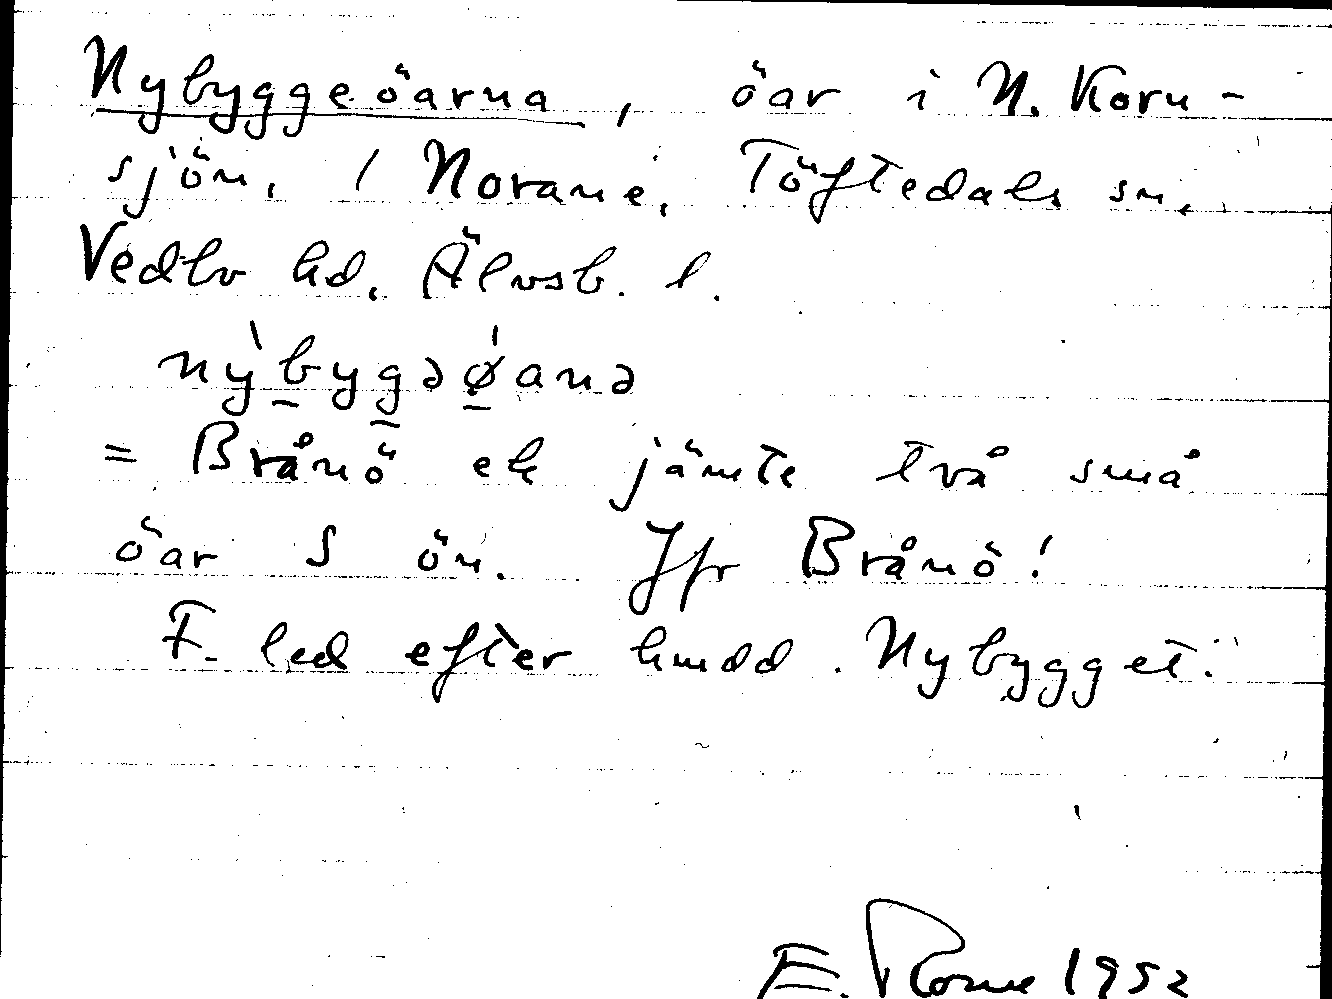 Nybyggeöarna, öar i N. Korn-
sjön, / Norane, Töftedals sn,
Vedbo hd, Älvsb. l.
nỳbygəǿanə
= Brånö ek jämte två små
öar S ön. Jfr Brånö!
F. led efter hmdd. Nybygget.
E. 1952